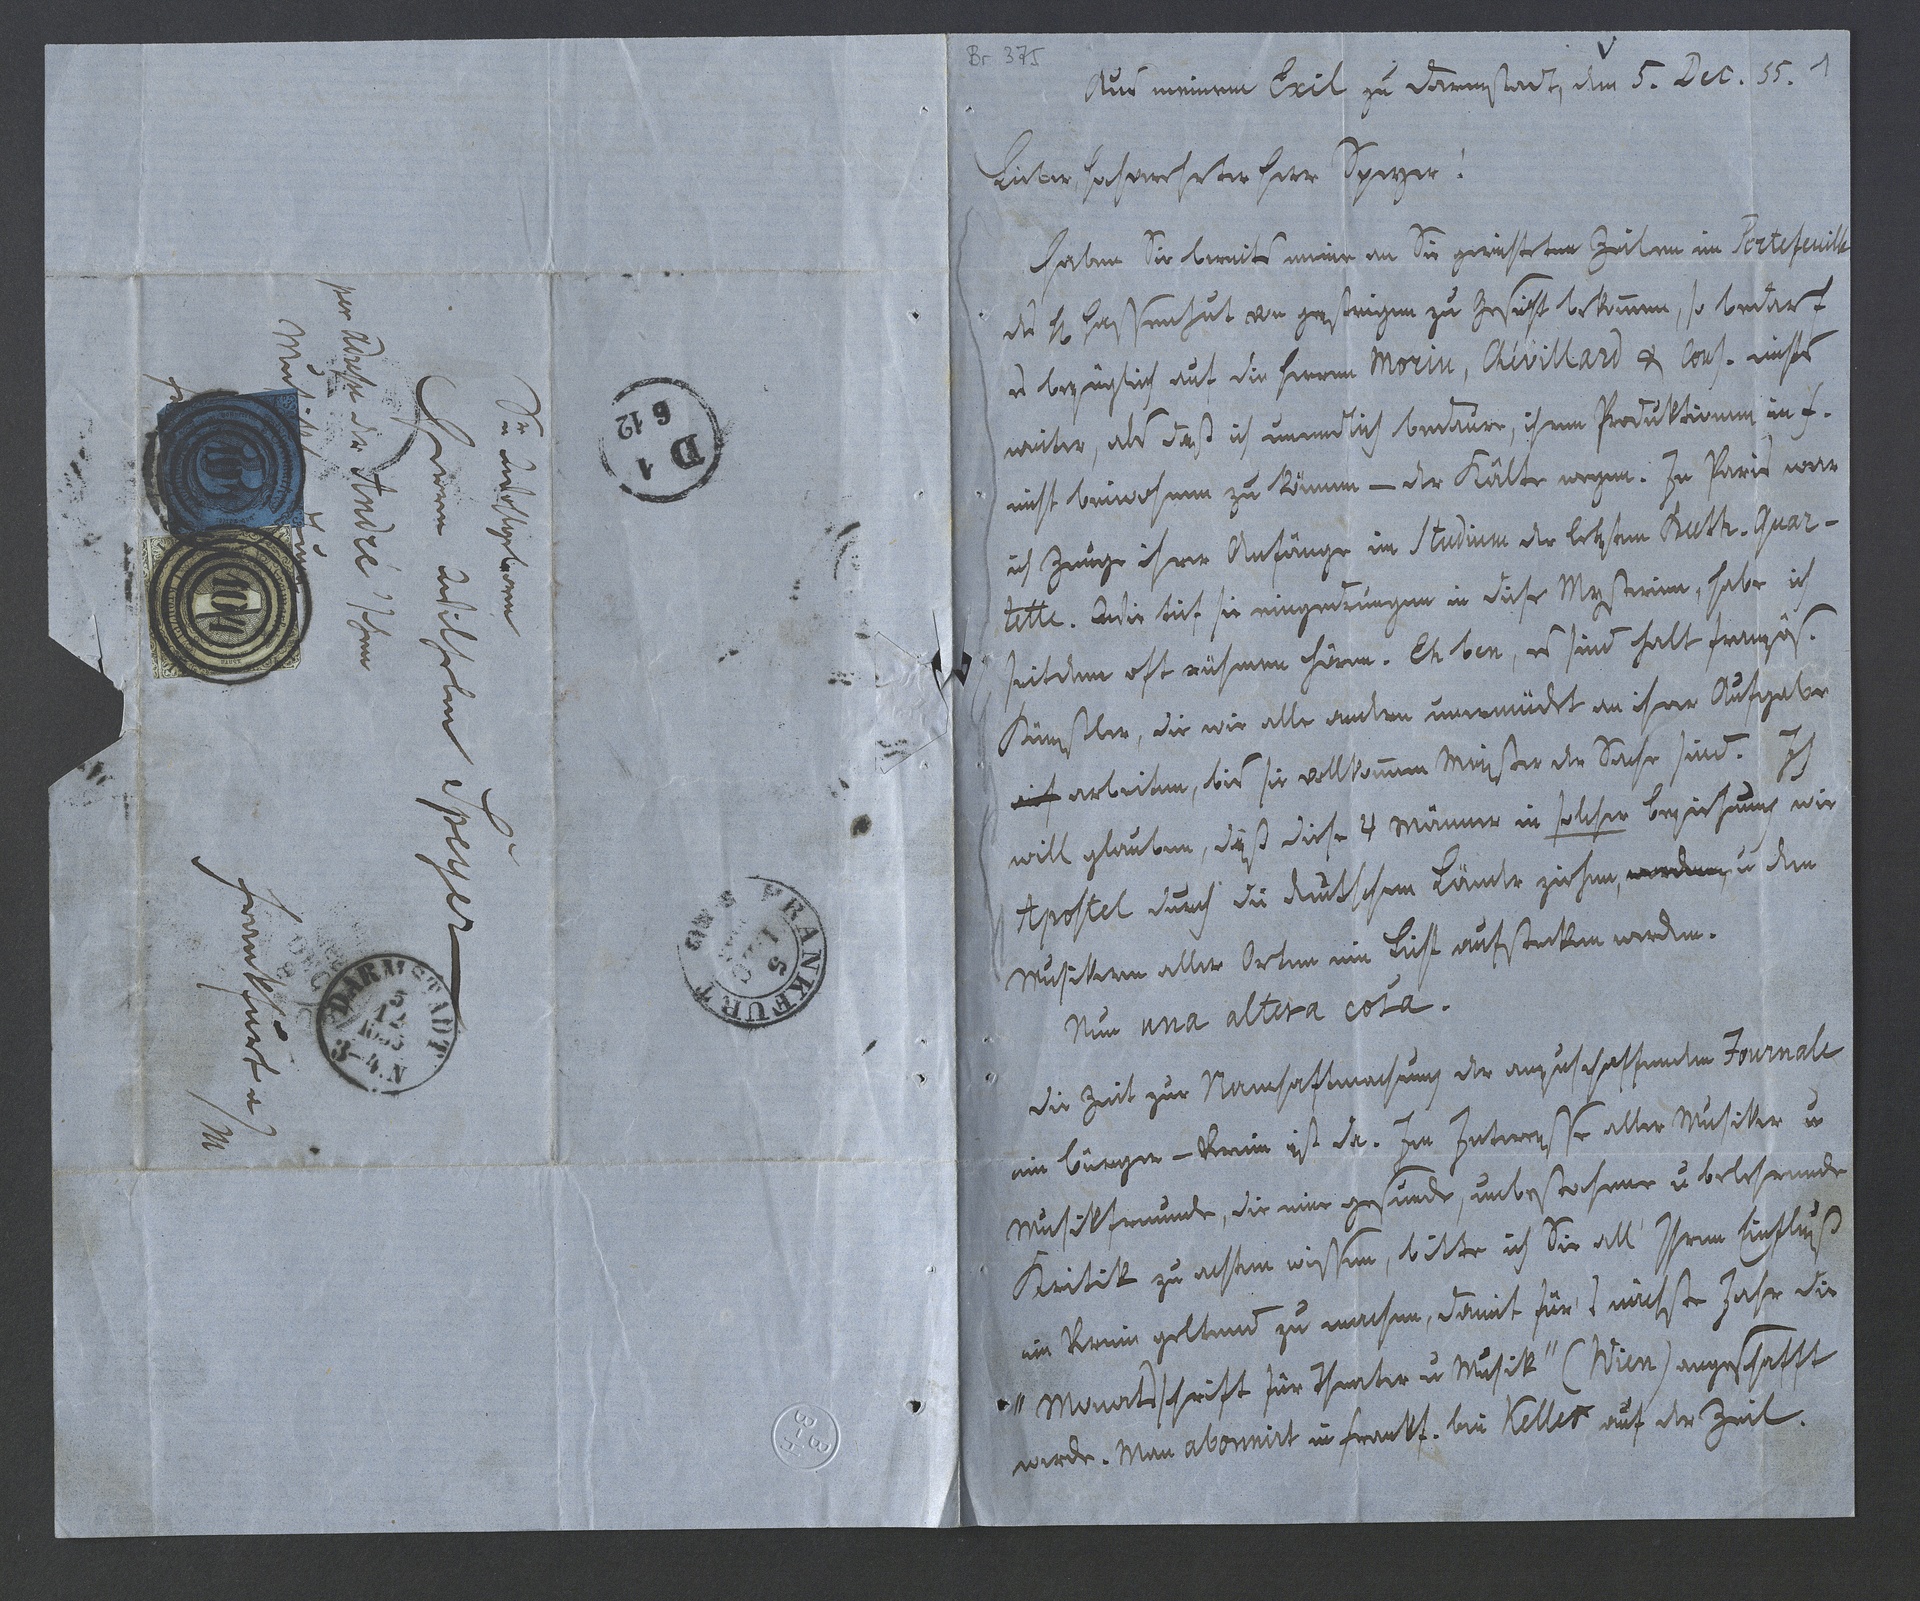 Br 375
Aus meinem Exil zu Darmstadt, den 5. Dec. 55.
1
Lieber, hochverehrter Herr Speyer!
Haben Sie bereits meine an Sie gerichteten Zeilen im Portefeuille
des H Hassenhut von gestrigen zu Gesicht bekommen, so bedarf
es bezüglich auf die Herren Morin, Chevillard & Cons. nichts
weiter, als daß ich unendlich bedaure, ihren Produktionen in F.
nicht beiwohnen zu können — der Kälte wegen. In Paris war
ich Zeuge ihrer Anfänge im Studium der letzten Beeth. Quar-
tette. Wie tief sie eingedrungen in diese Mysterien, habe ich
seitdem oft rühmen hören. Eh ben, es sind halt französ.
Künstler, die wie alle andern unermüdet an ihrer Aufgabe
arbeiten, bis sie vollkommen Meister der Sache sind. Ich
will glauben, daß diese 4 Männer in solcher Beziehung wie
Apostel durch die deutschen Länder ziehen, werden, u den
Musikern aller Orten ein Licht aufstecken werden.
Nun una altera cosa.
Die Zeit zur Namhaftmachung der anzuschaffenden Journale
im Bürger-Verein ist da. Im Interesse aller Musiker u
Musikfreunde, die eine gesunde, unbestochene u belehrende
Kritik zu achten wissen, bitte ich Sie all' Ihren Einfluß
im Verein geltend zu machen, damit für's nächste Jahr die
"Monatsschrift für Theater u Musik" (Wien) angeschafft
werde. Man abonnirt in Frankf. bei Keller auf der Zeil.
Sr Wohlgeboren
Herrn Wilhelm Speyer
per Adresse der André'schen
Musik
Frankfurt a/M
DARMSTADT
5
12
1855
3-4 N.
FRANKFURT
D 1
6 12
104
BBH